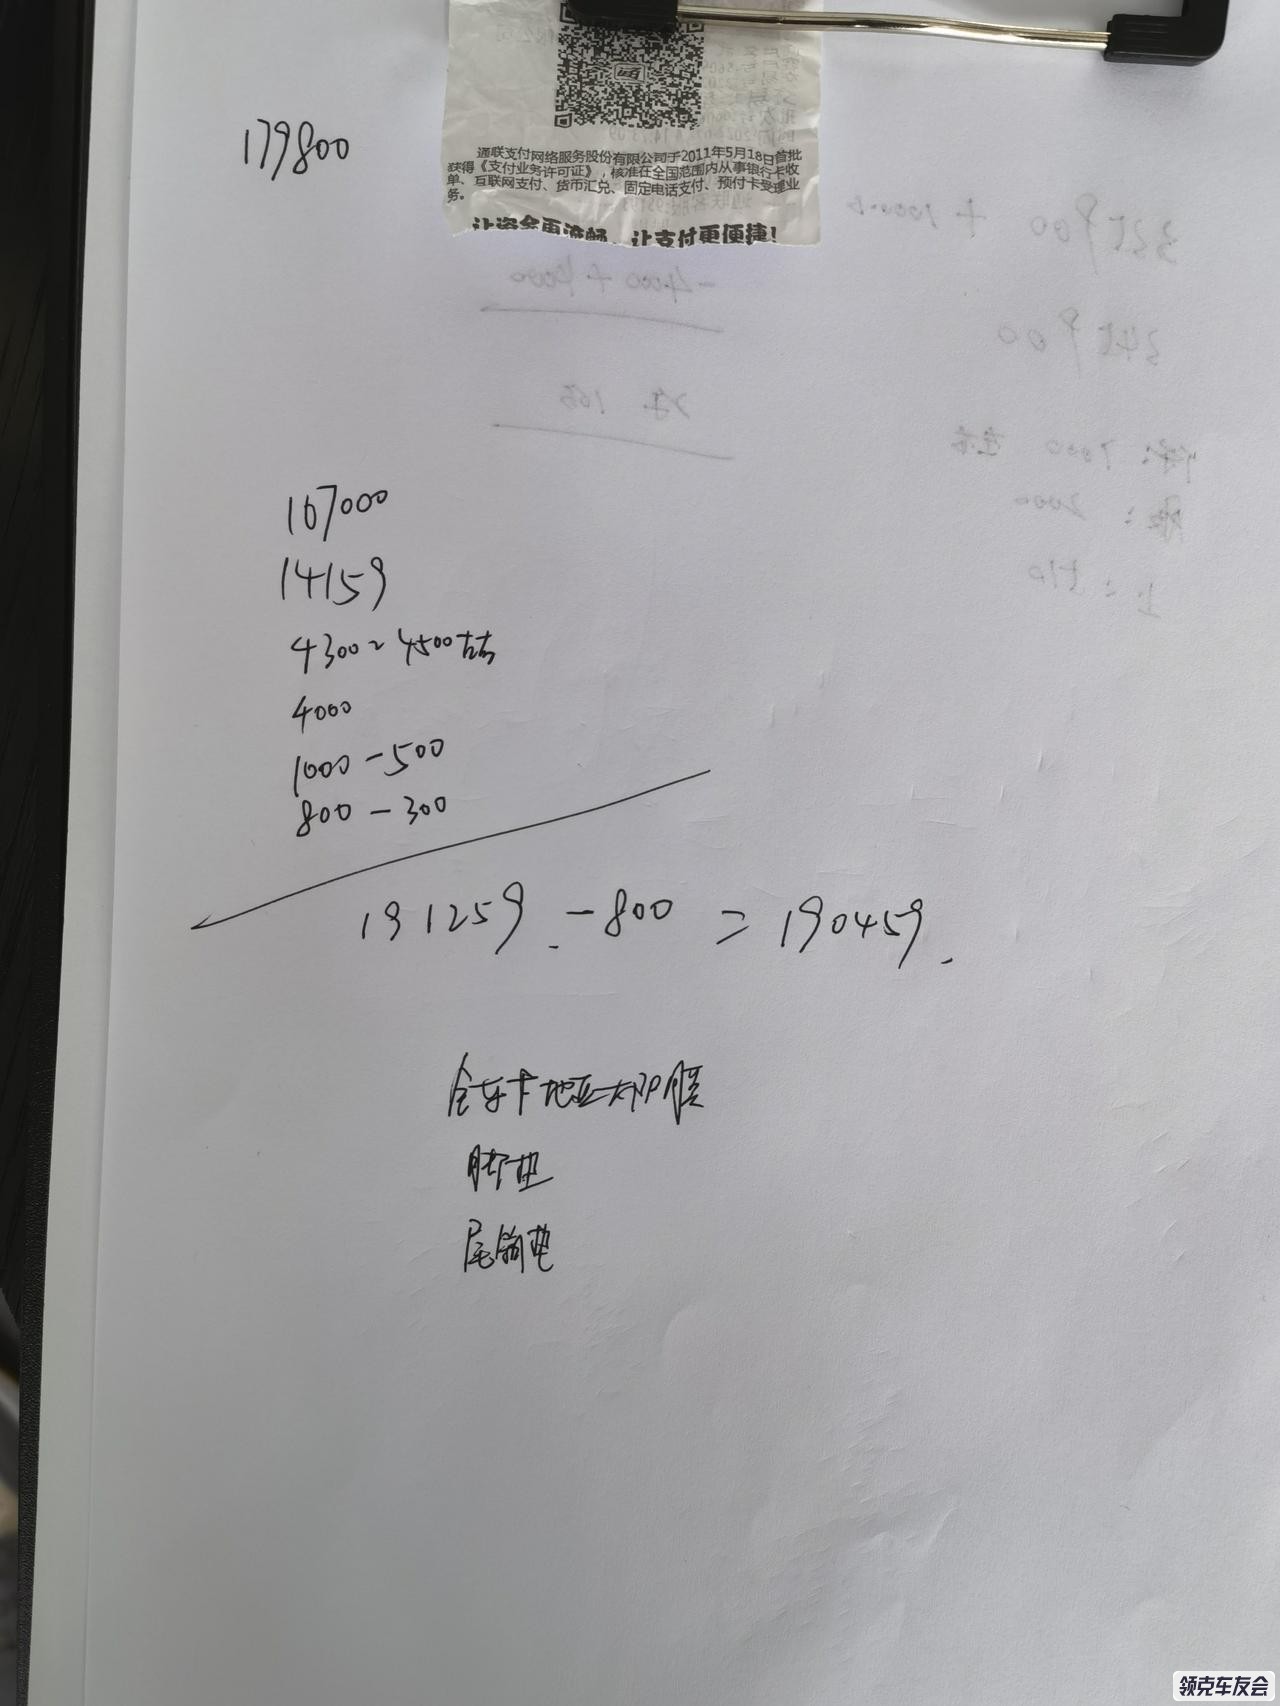 179800
通联支付网络服务股份有限公司于2011年5月18日首批
获得《支付业务许可证》，核准在全国范围内从事银行卡收
单、互联网支付、货币汇兑、固定电话支付、预付卡受理业
务。
让资金更流畅，让支付更便捷!
167000
14159
4300~4500左右
4000
1000-500
800-300
191259.-800=190459.
全车卡地亚大师膜
脚垫
尾箱垫
领克车友会